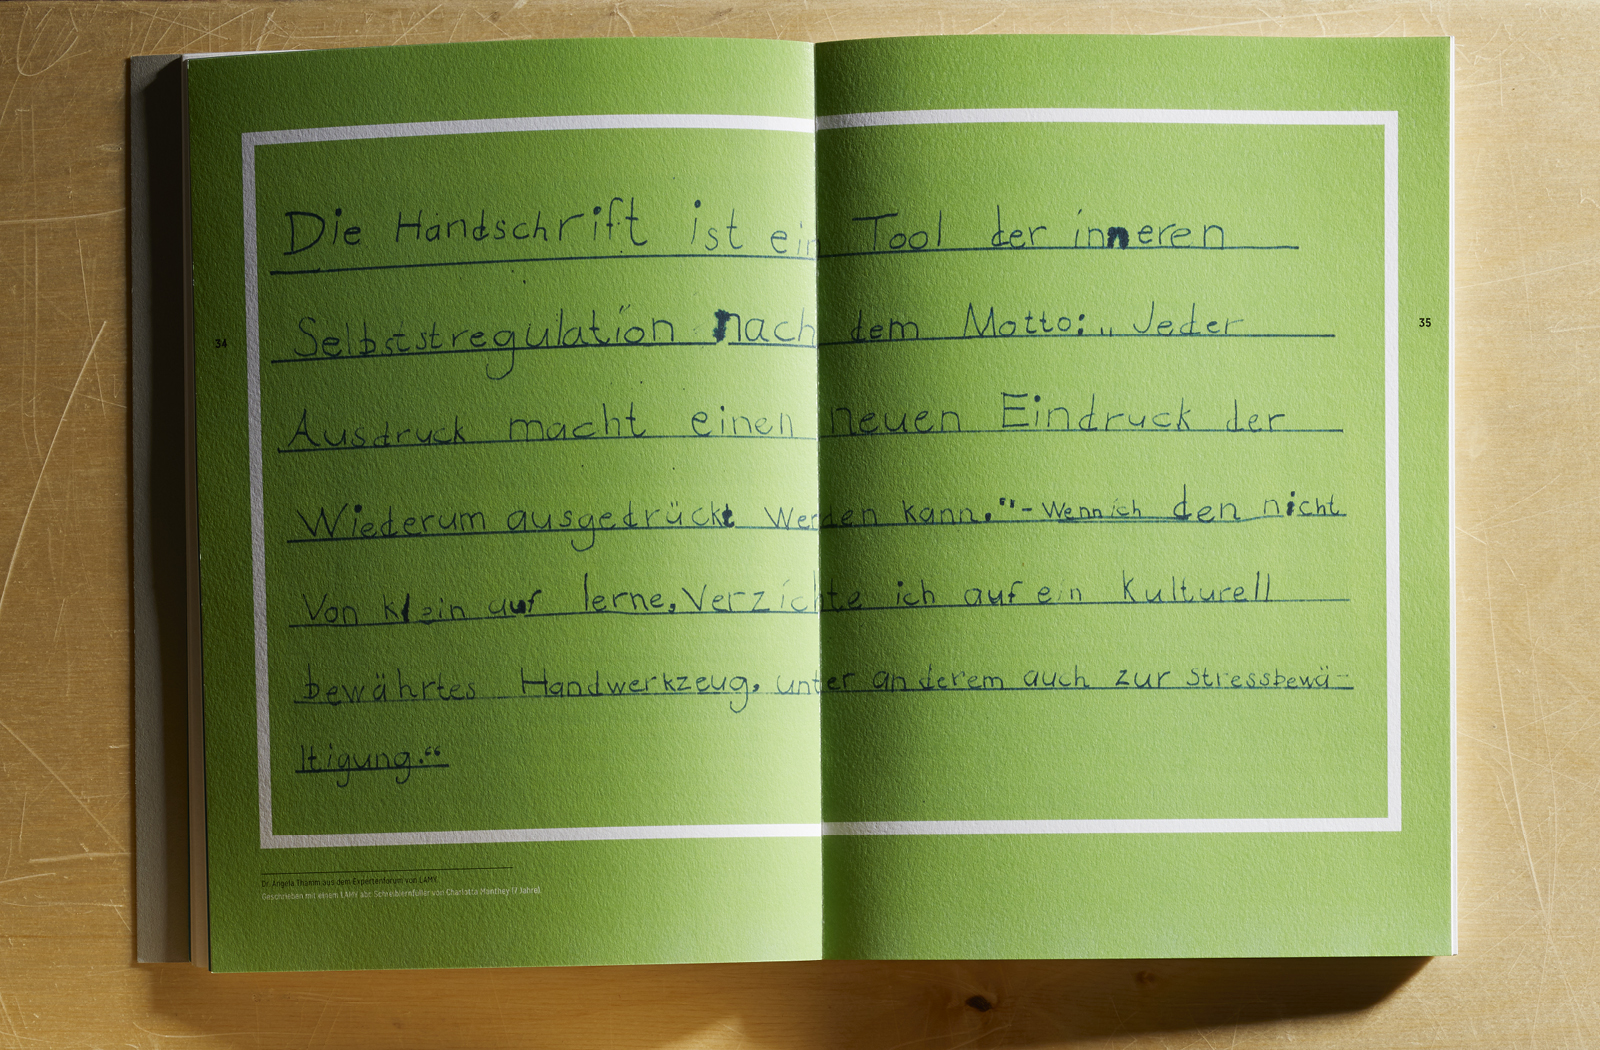 Die Handschrift ist ein Tool der inneren
Selbststregulation nach dem Motto: „Jeder
Ausdruck macht einen neuen Eindruck der
Wiederum ausgedrückt Werden kann." - Wenn ich den nicht
Von klein auf lerne, Verzichte ich auf ein Kulturell
bewährtes Handwerkzeug, unter anderem auch zur Stressbewä-
ltigung."
34
35
Dr. Angela Thamm aus dem Expertenforum von LAMY
Geschrieben mit einem LAMY abc Schreiblernfüller von Charlotte (7 Jahre)